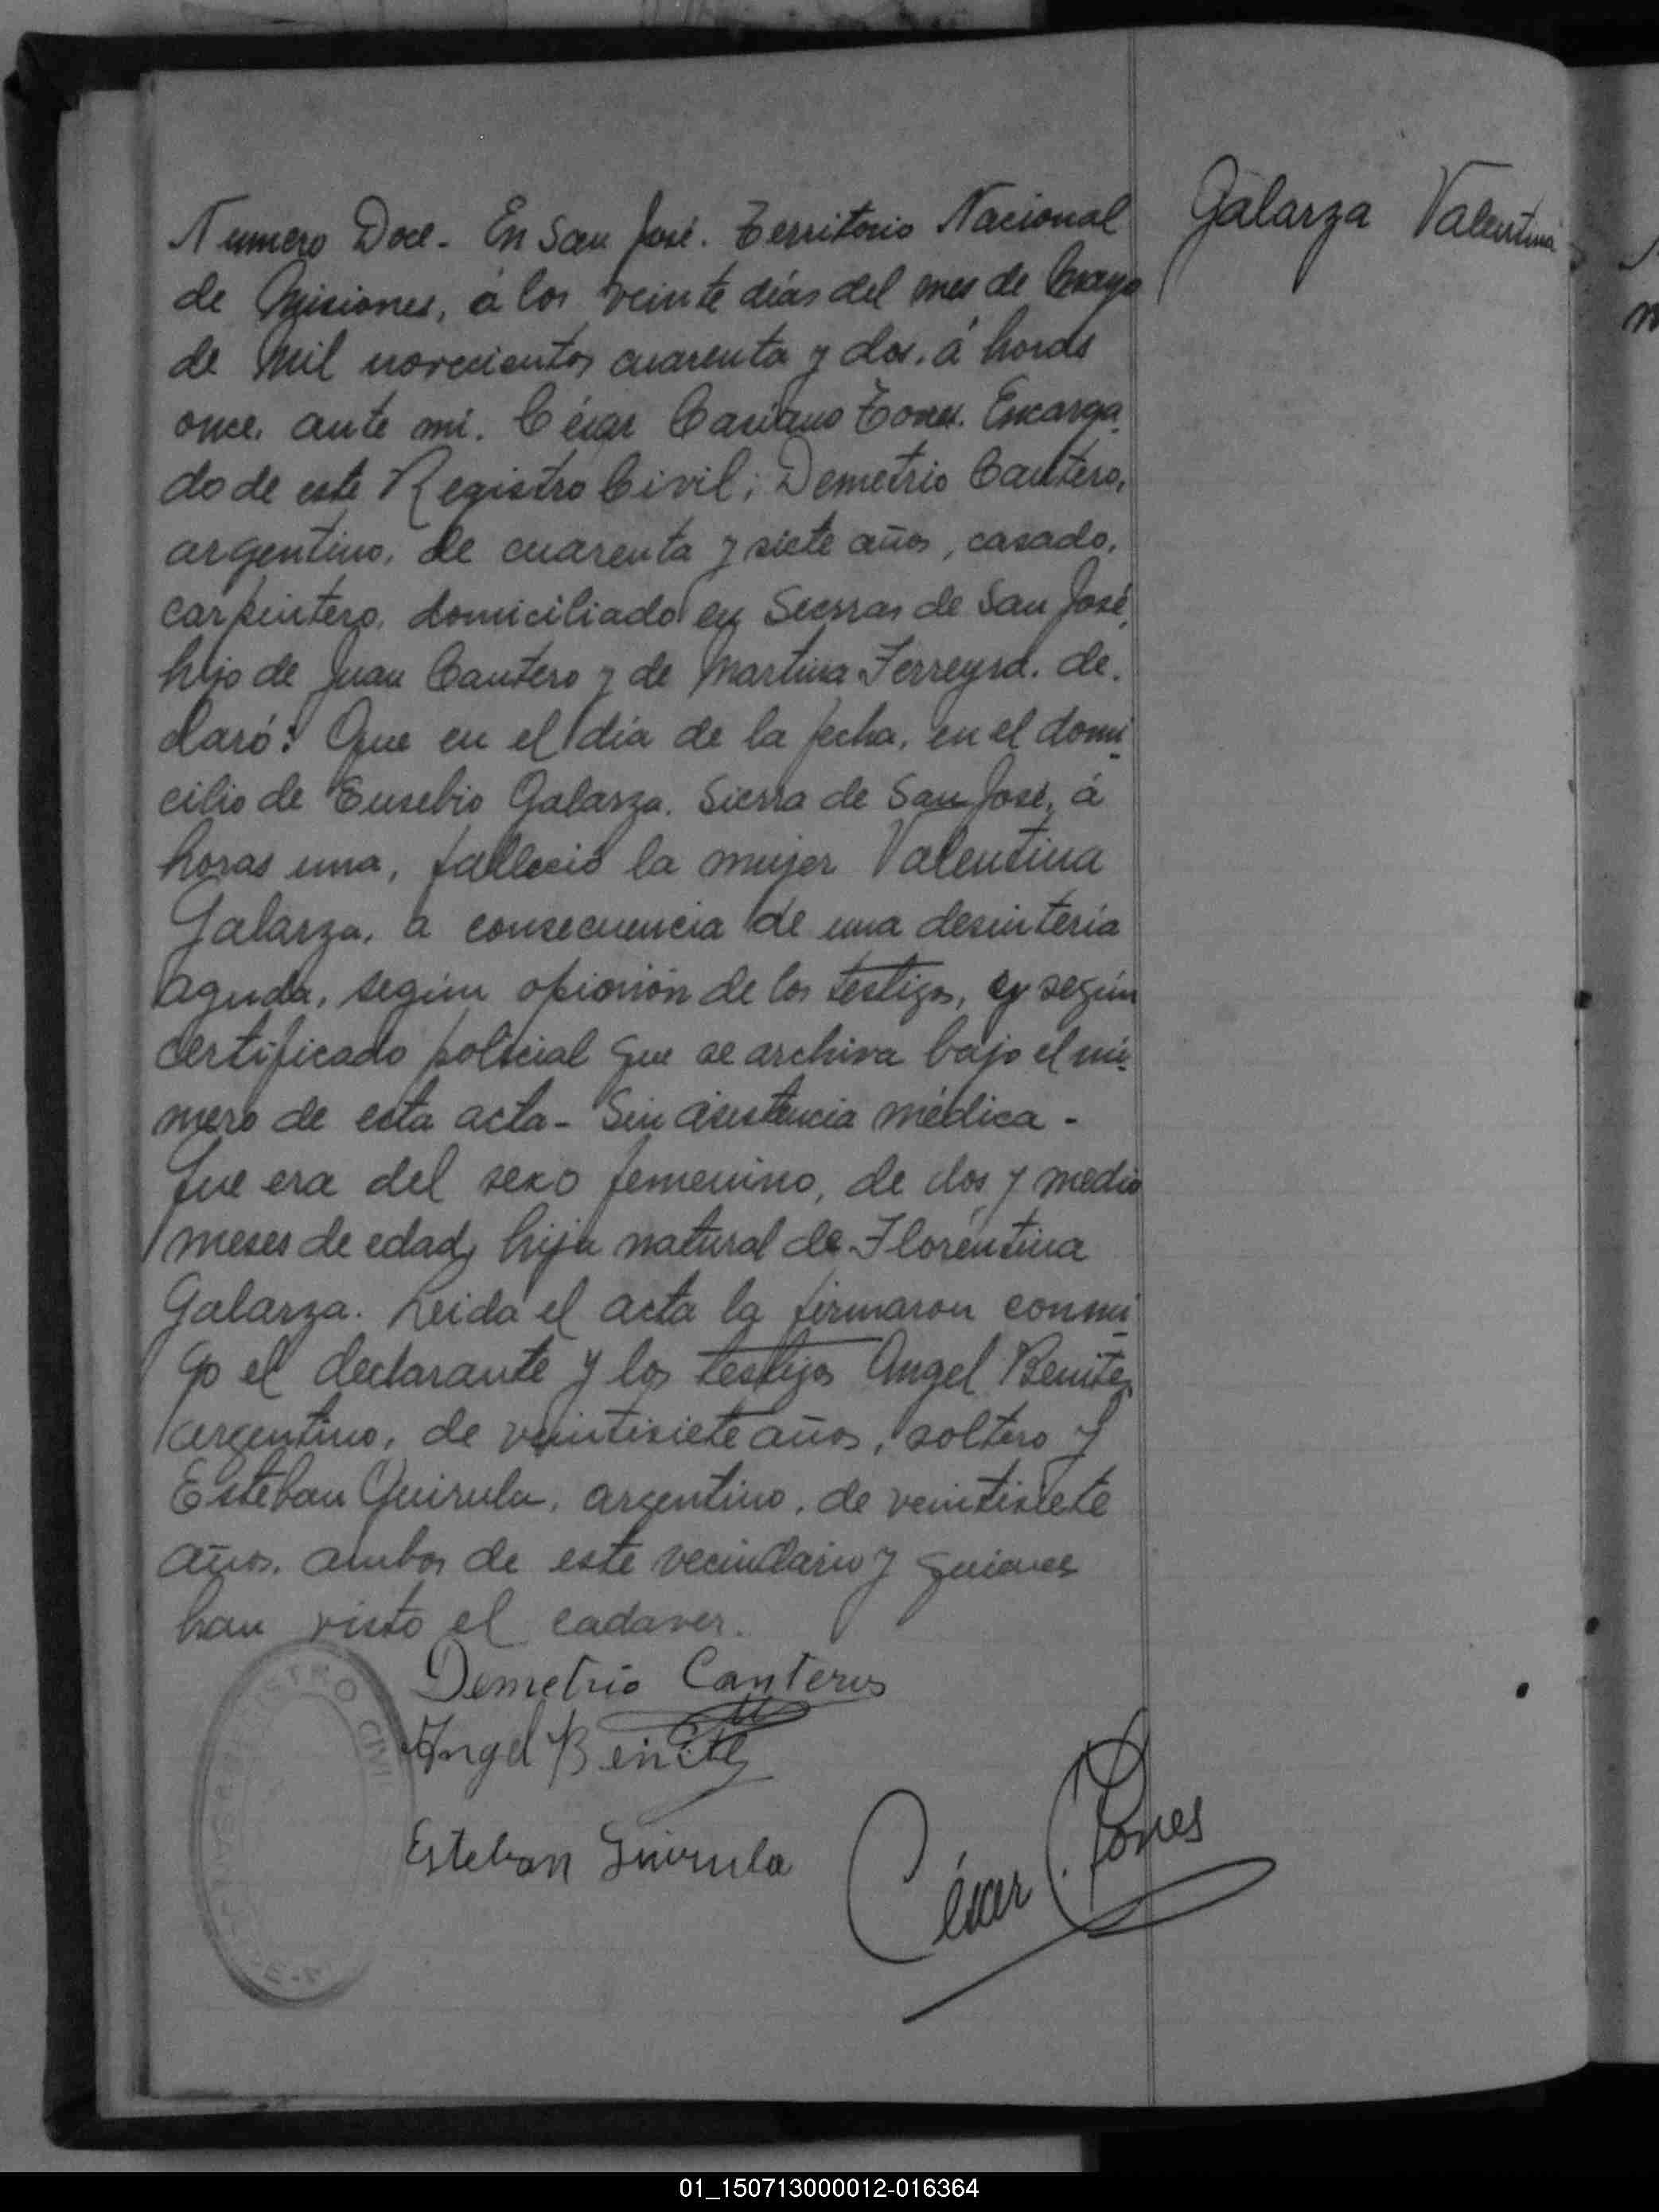 Galarza Valentina
Numero Doce. En San José. Territorio Nacional
de Misiones, á los veinte días del mes de Mayo
de mil novecientos cuarenta y dos. á horas
once. ante mi. César Casiano Tones. Encarga
do de este Registro Civil; Demetrio Cantero,
argentino, de cuarenta y siete años, casado,
carpintero, domiciliado en Sierras de San José,
hijo de Juan Cantero y de Martina Ferreyra. de.
claró: Que en el día de la fecha, en el domi
cilio de Eusebio Galarza. Sierra de San José, á
horas una, falleció la mujer Valentina
Galarza, a consecuencia de una desinteria
aguda, según opinión de los testigos, y según
certificado policial que se archiva bajo el nú-
mero de esta acta - Sin asistencia médica -
Que era del sexo femenino, de dos y medio
meses de edad, hija natural de Florentina
Galarza. Leida el acta la firmaron conmi-
go el declarante y los testigos Angel Benitez
argentino, de veintisiete años, soltero y
Esteban Guirula, argentino, de veintisiete
años, ambos de este vecindario y quienes
han visto el cadaver.
Demetrio Canteros
Angel Benitez
Esteban Guirula
César C. Tones
REGISTRO CIVIL
01_150713000012-016364